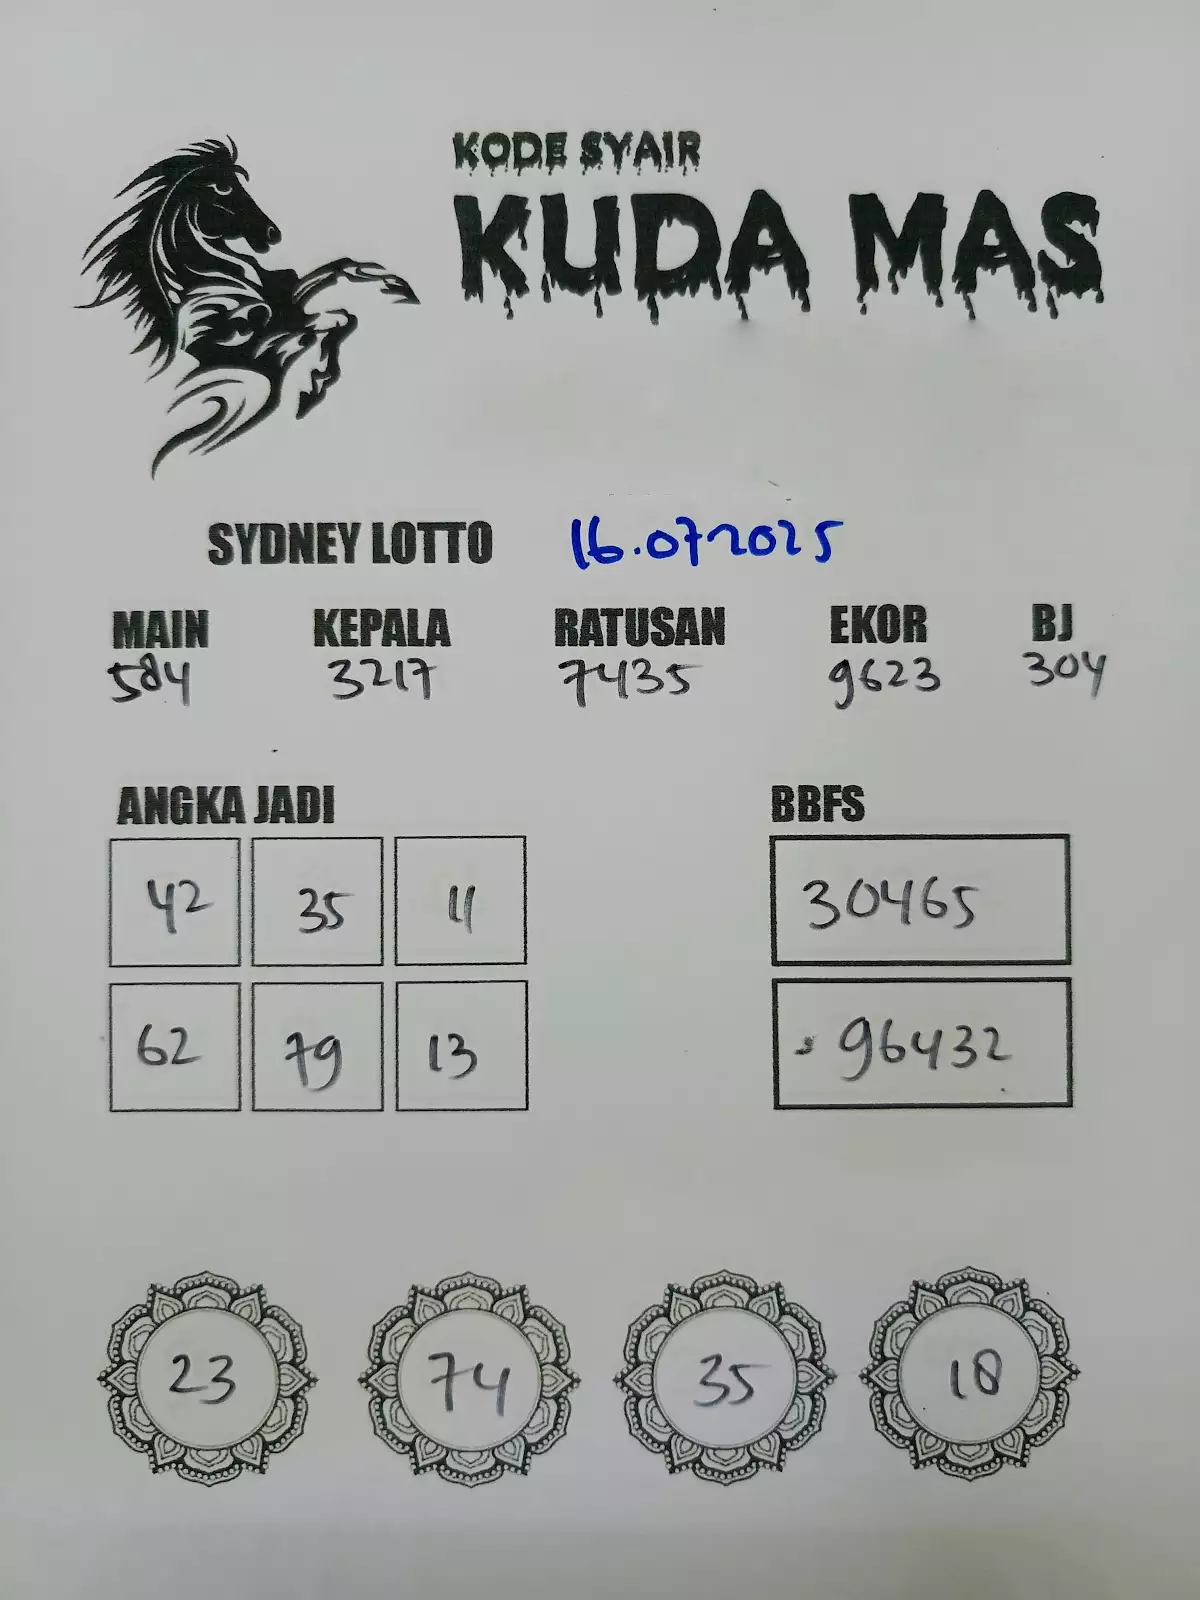 KODE SYAIR
KUDA MAS
SYDNEY LOTTO 16.07 2025
MAIN KEPALA RATUSAN EKOR BJ
584 3217 7435 9623 304
ANGKA JADI BBFS
42 35 11 30465
62 79 13 96432
23 74 35 18